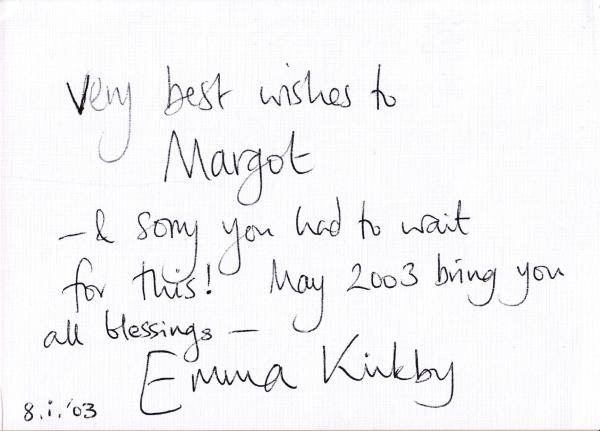 Very best wishes to
Margot
— & sorry you had to wait
for this! May 2003 bring you
all blessings —
Emma Kirkby
8.i.'03